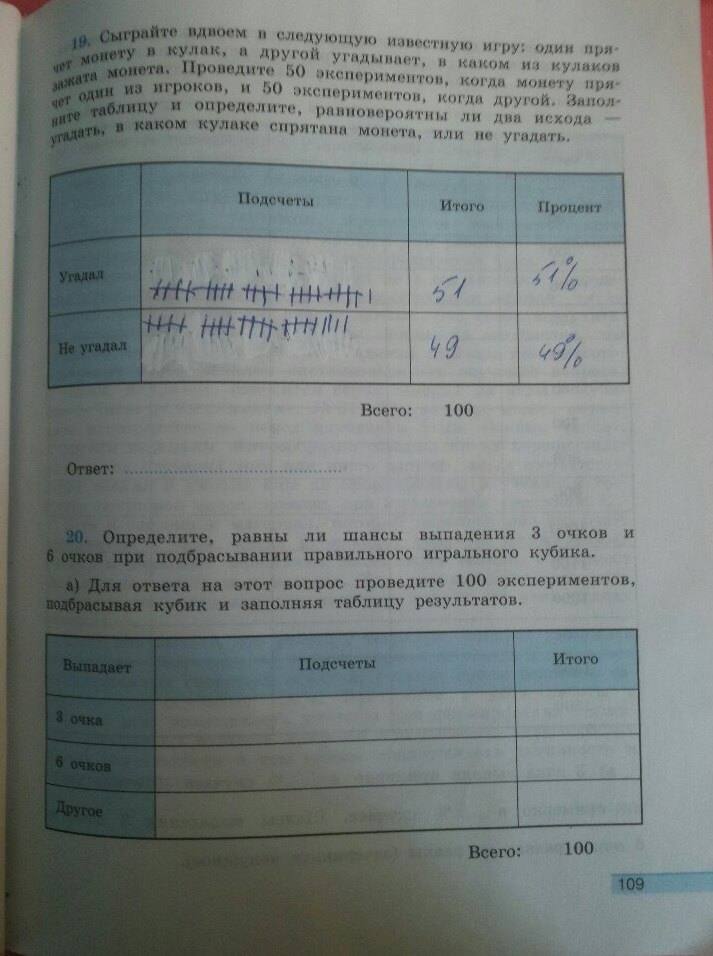 19. Сыграйте вдвоем в следующую известную игру: один пря-
чет монету в кулак, а другой угадывает, в каком из кулаков
зажата монета. Проведите 50 экспериментов, когда монету пря-
чет один из игроков, и 50 экспериментов, когда другой. Запол-
ните таблицу и определите, равновероятны ли два исхода —
угадать, в каком кулаке спрятана монета, или не угадать.
Подсчеты Итого Процент
Угадал 51 51%
Не угадал 49 49%
Всего: 100
Ответ:
20. Определите, равны ли шансы выпадения 3 очков и
6 очков при подбрасывании правильного игрального кубика.
а) Для ответа на этот вопрос проведите 100 экспериментов,
подбрасывая кубик и заполняя таблицу результатов.
Выпадает Подсчеты Итого
3 очка
6 очков
Другое
Всего: 100
109